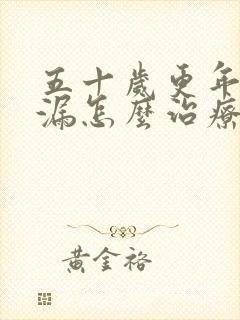 五十歲更年
漏怎麼治療
黃金裕